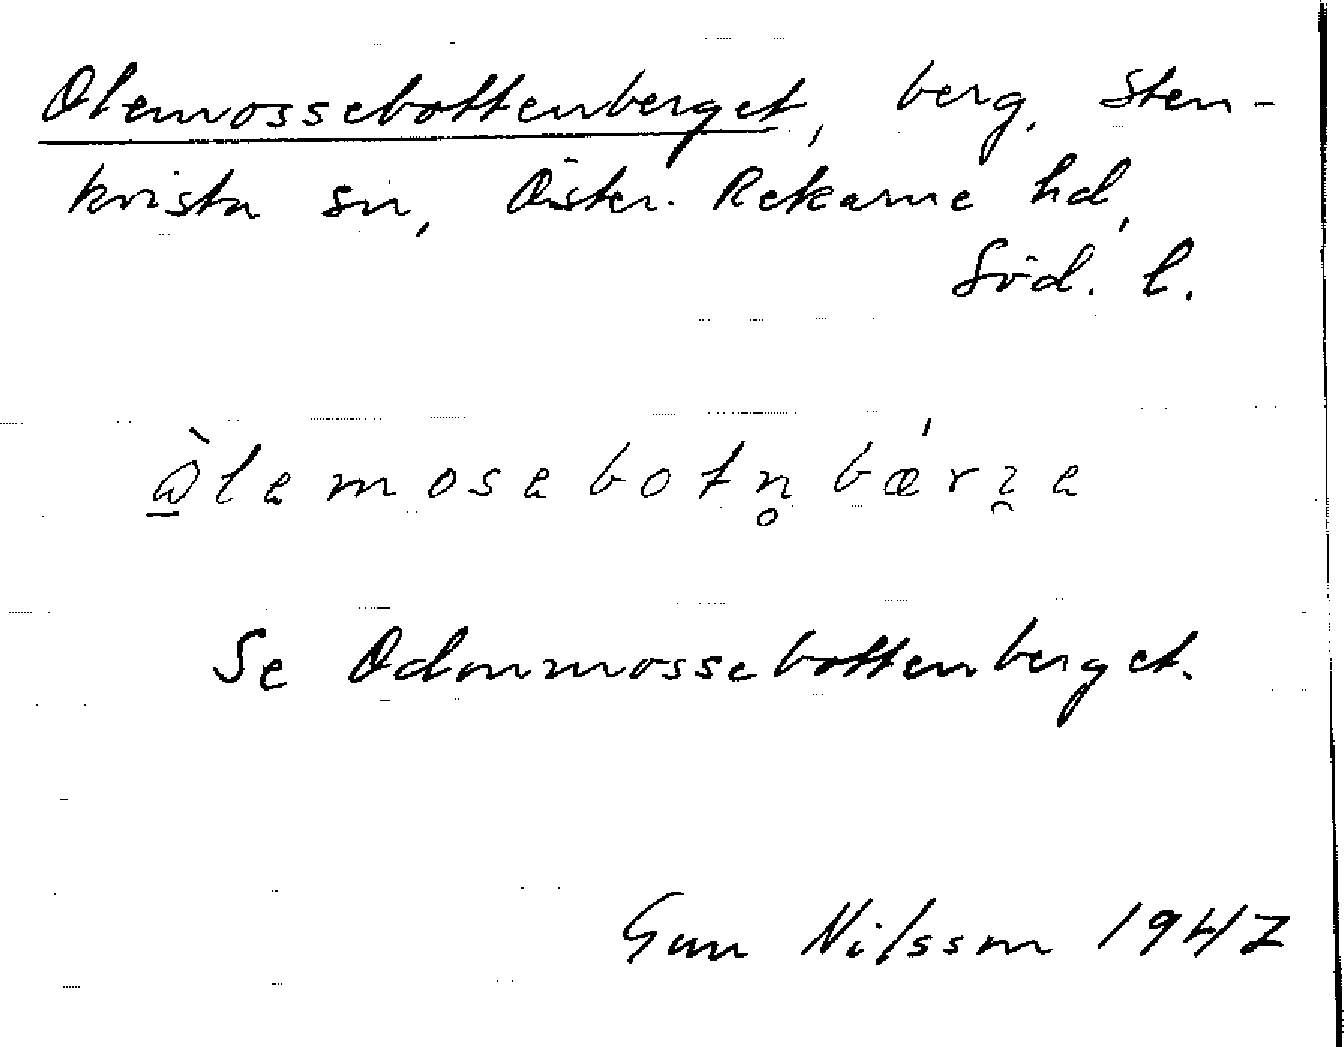 Olemossebottenberget, berg, Sten-
kvista sn, Öster-Rekarne hd,
Söd. l.
òlemosebotn̥bǽrʒe
Se Odonmossebottenberget.
Gun Nilsson 1947